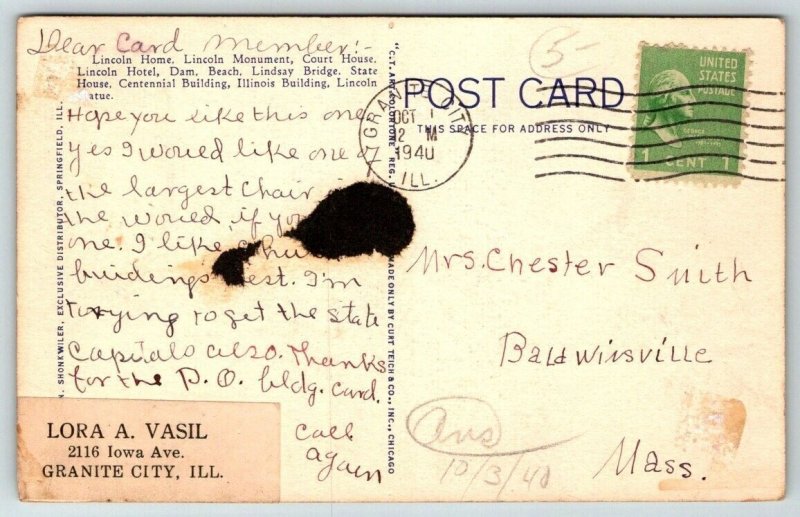 Dear Card Member:-
Lincoln Home, Lincoln Monument, Court House,
Lincoln Hotel, Dam, Beach, Lindsay Bridge, State
House, Centennial Building, Illinois Building, Lincoln
atue.
Hope you like this one
yes I would like one of
the largest Chair
the would, if you
one. I like
buildings est. I'm
trying to get the state
Capitals also. Thanks
for the P.O. bldg. card.
Call
again
LORA A. VASIL
2116 Iowa Ave.
GRANITE CITY, ILL.
N. SHONKWILER, EXCLUSIVE DISTRIBUTOR, SPRINGFIELD, ILL.
"C.T. ART-COLORTONE" REG. U
MADE ONLY BY CURT TEICH & CO., INC., CHICAGO
POST CARD
THIS SPACE FOR ADDRESS ONLY
GRANITE CITY
OCT 1
2 M
1940
ILL.
5-
UNITED
STATES
POSTAGE
1 CENT 1
Mrs. Chester Smith
Baldwinsville
Mass.
Ans
10/3/40